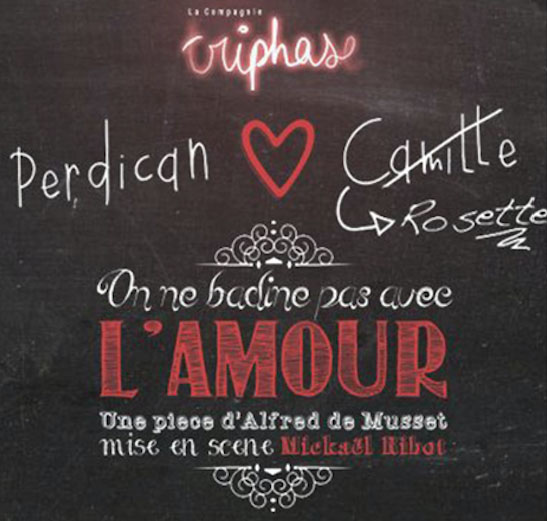 La Compagnie
triphase
Perdican Camille
Rosette
On ne badine pas avec
L'AMOUR
Une piece d'Alfred de Musset
mise en scene Mickaël Ribot